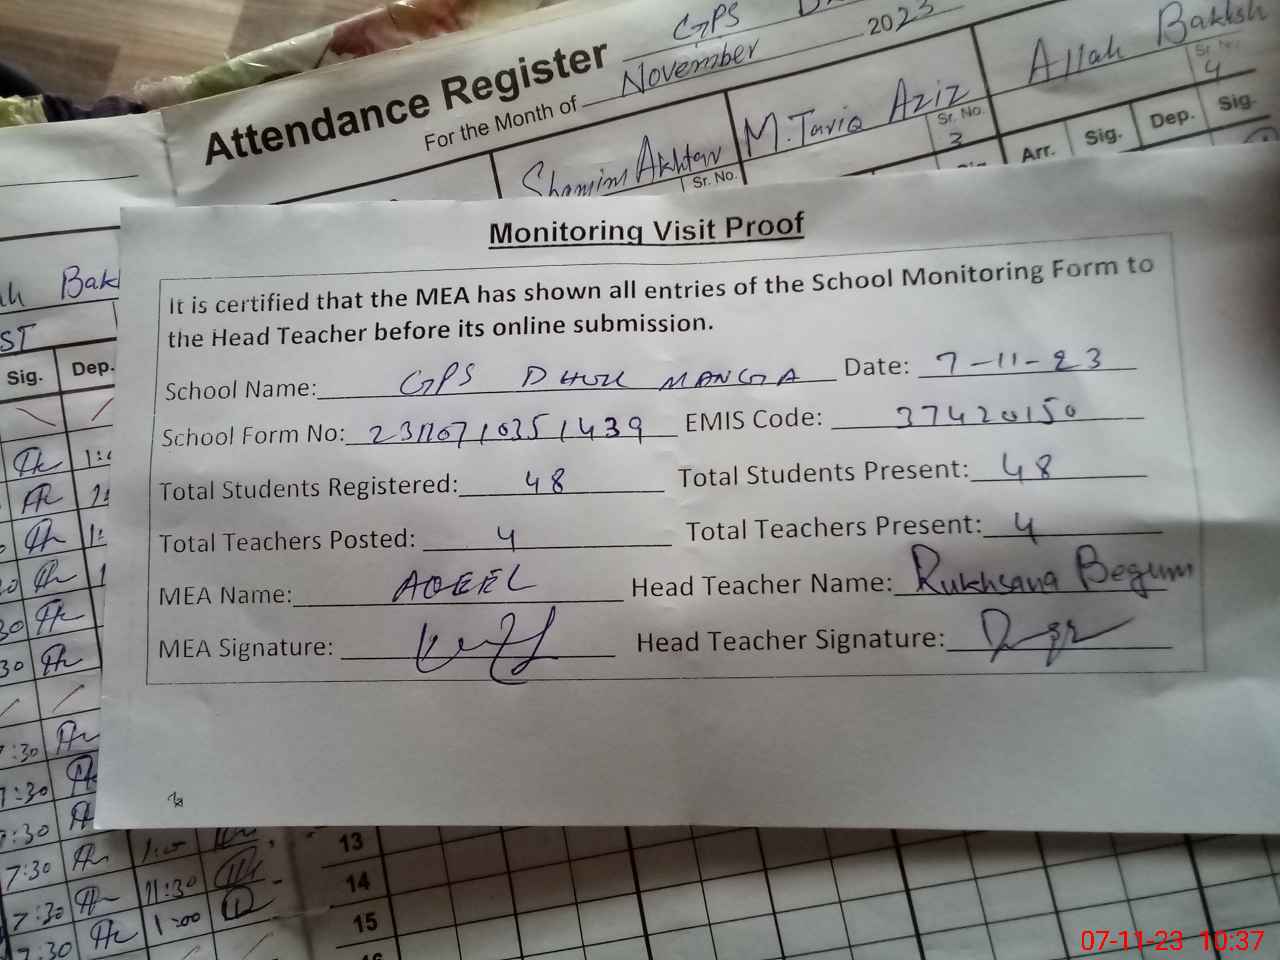 GPS
Attendance Register
For the Month of November 2023
Shamim Akhtar
Sr. No.
M. Tariq Aziz
Sr. No.
3
Allah Bakhsh
Sr. No.
4
Arr. Sig. Dep. Sig.
Monitoring Visit Proof
It is certified that the MEA has shown all entries of the School Monitoring Form to
the Head Teacher before its online submission.
School Name: GPS DHOK MANGA Date: 7-11-23
School Form No: 23110710351439 EMIS Code: 37420150
Total Students Registered: 48 Total Students Present: 48
Total Teachers Posted: 4 Total Teachers Present: 4
MEA Name: AQEEL Head Teacher Name: Rukhsana Begum
MEA Signature: Head Teacher Signature:
ST
Sig. Dep.
7:30
7:30
7:30
7:30 1:00
7:30 11:30
7:30 1:00
13
14
15
16
07-11-23 10:37